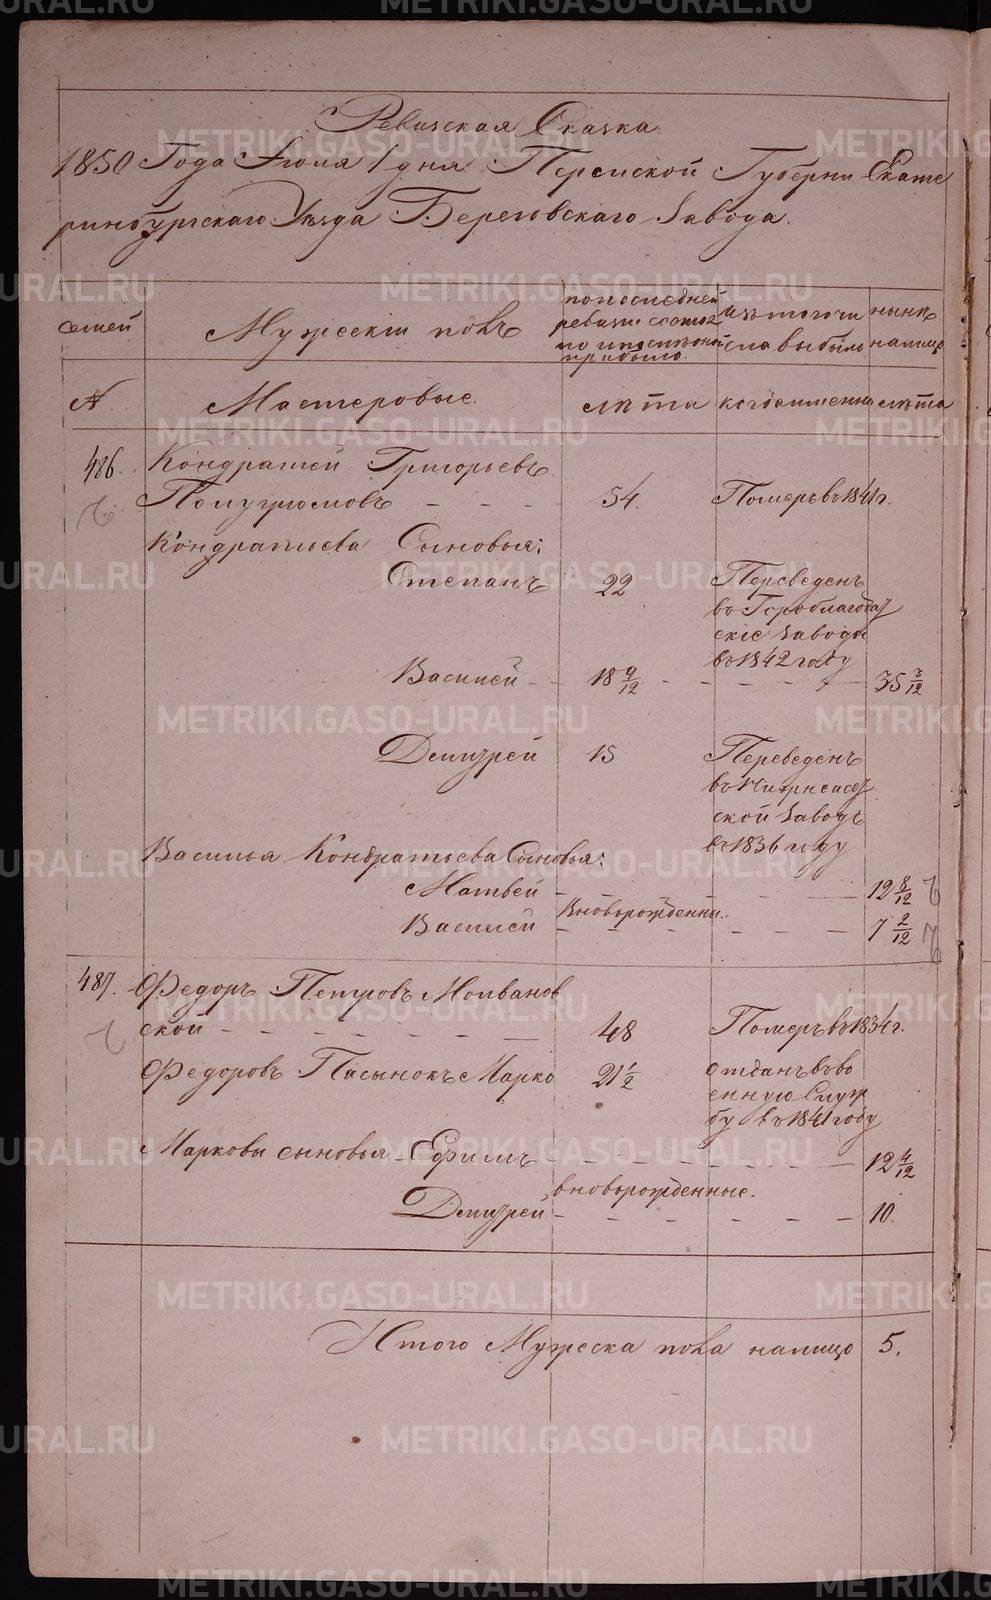 Ревизская Сказка
1850 Года Июля 1 дня Пермской Губернии Екате
ринбургскаго Уезда Березовскаго Завода.
семей
Мужескій полъ
по последней
ревизіи состоя
ло и после оной
прибыло.
изъ того чи
сла выбыло
ныне
налицо
№
Мастеровые.
лѣта
когда именно
лѣта
486. Кондратей Григорьевъ
Полугрюмовъ - - - 54. Померъ въ 1841 г.
Кондратьева Сыновья:
Степанъ 22 Переведенъ
въ Гороблагодат
скіе Заводы
въ 1842 году
Василей - - 18 9/12 - - - - - 35 3/12
Дмитрей 15 Переведенъ
ской Заводъ
въ 1836 году
Василья Кондратьева Сыновья:
Матвей - - - - 12 8/12
Вноворожденны.
Василей - - - - - - 7 2/12
487. Федоръ Петровъ Молванов
ской - - - - - - 48 Померъ въ 1834 г.
Федоровъ Пасынокъ Марко 21 1/2 отданъ въ во
енную Служ
бу въ 1841 году
Марковы сыновья Ефимъ - - - - - - 12 4/12
вноворожденные.
Дмитрей - - - - - - 10.
Итого Мужеска пола налицо 5.
METRIKI.GASO-URAL.RU